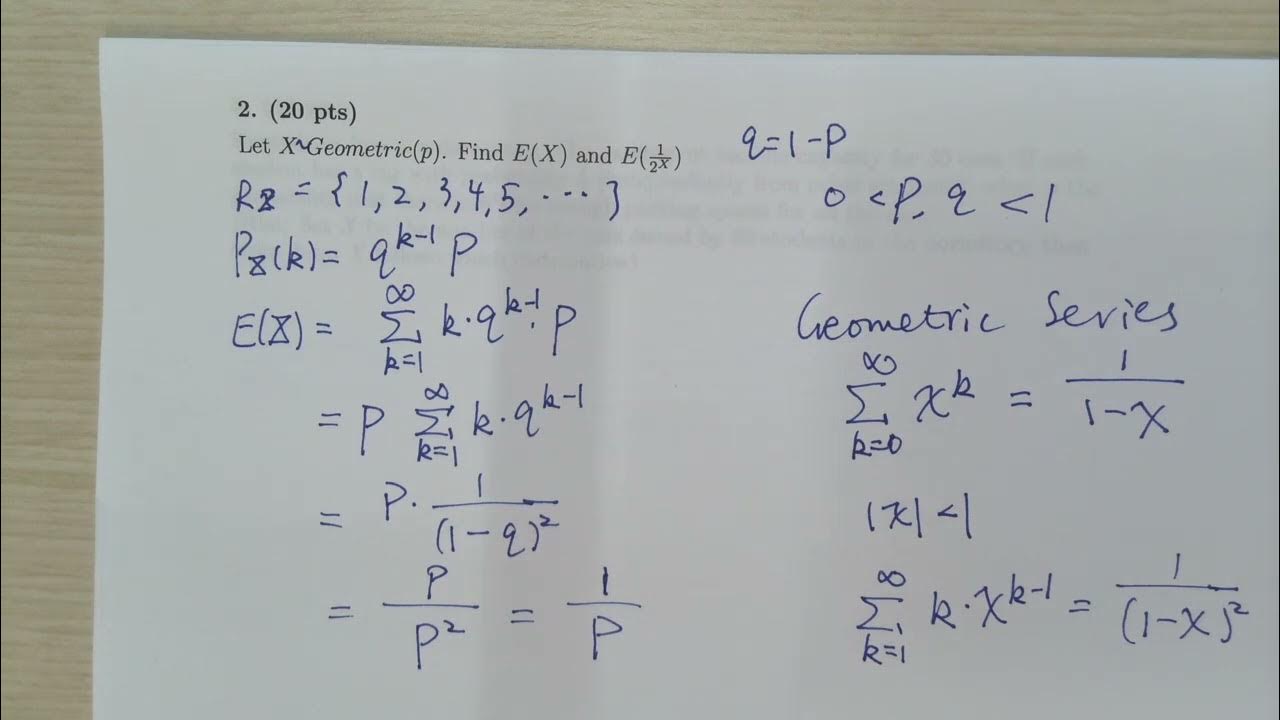 2. (20 pts)
Let X~Geometric(p). Find E(X) and E(1/2^X)
q=1-p
R_X = {1, 2, 3, 4, 5, ...}
0 < p, q < 1
P_X(k) = q^{k-1} p
E(X) = ∑_{k=1}^{∞} k·q^{k-1}·p
= p ∑_{k=1}^{∞} k·q^{k-1}
= p · 1/(1-q)^2
= p/p^2 = 1/p
Geometric Series
∑_{k=0}^{∞} x^k = 1/(1-x)
|x|<1
∑_{k=1}^{∞} k·x^{k-1} = 1/(1-x)^2